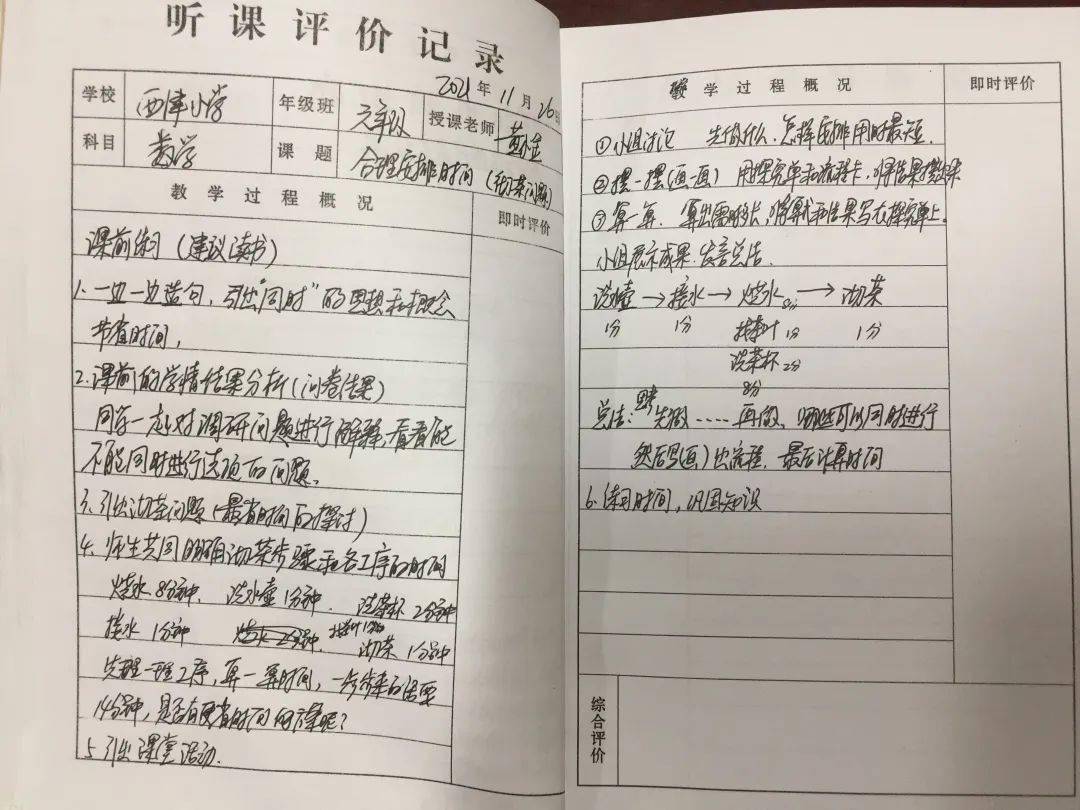 听课评价记录
2021年11月26
学校 西津小学 年级班 六年级 授课老师 黄小金
科目 数学 课题 合理安排时间(沏茶问题)
教学过程概况 即时评价
课前练习(建议读书)
1.一边一边造句,引出"同时"的思想和概念
节省时间,
2.课前的学情结果分析(问卷结果)
同学一起对调研问题进行解释,看看能
不能同时进行选项的问题。
3.引出沏茶问题(最省时间的探讨)
4.师生共同明确沏茶步骤和各工序的时间
烧水8分钟. 洗水壶1分钟. 洗茶杯2分钟
接水1分钟 找茶叶1分钟 沏茶1分钟
先理一理工序,算一算时间,一步步来的话要
14分钟,是否有更省时间的方案呢?
5.引出课堂活动.
教学过程概况 即时评价
①小组讨论 先做什么.怎样安排用时最短.
②摆一摆(画一画) 用探究单和流程卡,将结果摆出来
③算一算.算出需时多长,将算式和结果写在探究单上。
小组展示成果.发言总结.
洗水壶→接水→烧水8分→沏茶
1分 1分 找茶叶1分 1分
洗茶杯2分
8分
总结: 先做……再做,哪些可以同时进行
然后写(画)出流程.最后计算时间
6.练习时间,巩固知识
综合评价